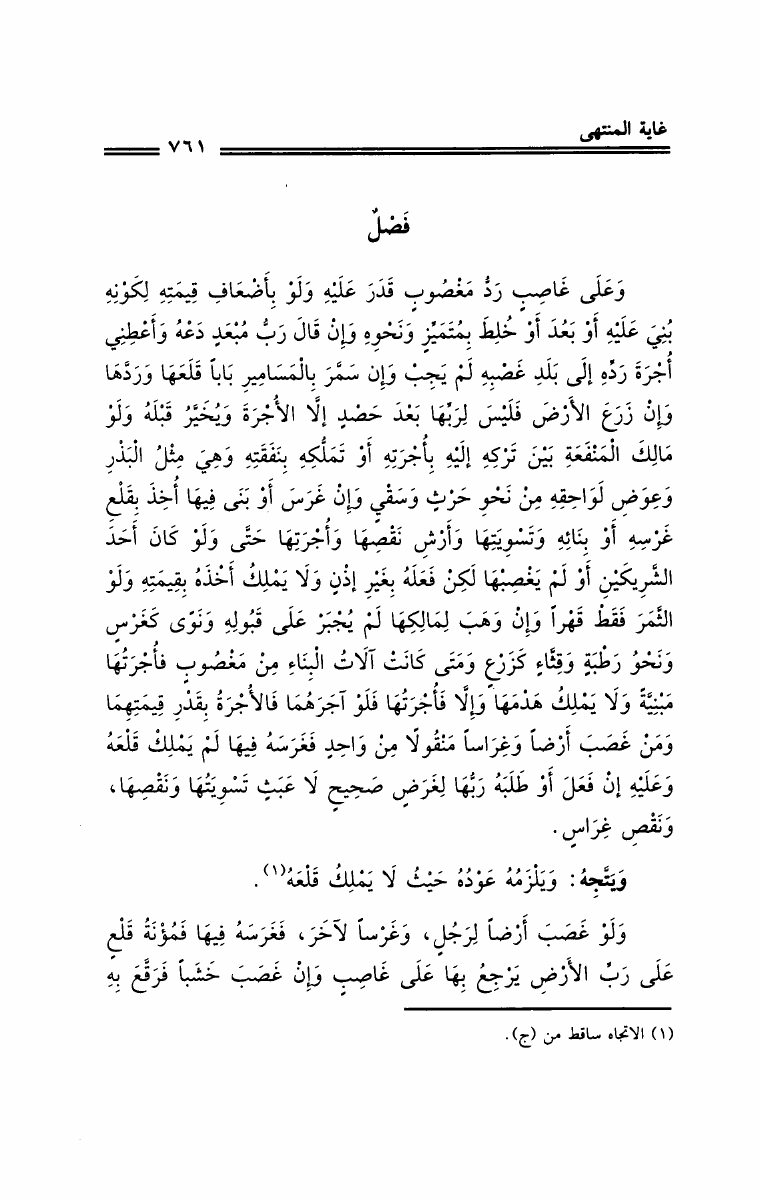 غاية المنتهى
٧٦١
فَصْلٌ
وَعَلَى غَاصِبٍ رَدُّ مَغْصُوبٍ قَدَرَ عَلَيْهِ وَلَوْ بِأَضْعَافِ قِيمَتِهِ لِكَوْنِهِ
بُنِيَ عَلَيْهِ أَوْ بَعُدَ أَوْ خُلِطَ بِمُتَمَيِّزٍ وَنَحْوِهِ وَإِنْ قَالَ رَبُّ مُبْعَدٍ دَعْهُ وَأَعْطِنِي
أُجْرَةَ رَدِّهِ إلَى بَلَدِ غَصْبِهِ لَمْ يَجِبْ وَإِن سَمَّرَ بِالْمَسَامِيرِ بَاباً قَلَعَهَا وَرَدَّهَا
وَإِنْ زَرَعَ الأَرْضَ فَلَيْسَ لِرَبِّهَا بَعْدَ حَصْدٍ إلَّا الأُجْرَةَ وَيُخَيَّرُ قَبْلَهُ وَلَوْ
مَالِكَ الْمَنْفَعَةِ بَيْنَ تَرْكِهِ إلَيْهِ بِأُجْرَتِهِ أَوْ تَمَلُّكِهِ بِنَفَقَتِهِ وَهِيَ مِثْلُ الْبَذْرِ
وَعِوَضِ لَوَاحِقِهِ مِنْ نَحْوِ حَرْثٍ وَسَقْيٍ وَإِنْ غَرَسَ أَوْ بَنَى فِيهَا أُخِذَ بِقَلْعِ
غَرْسِهِ أَوْ بِنَائِهِ وَتَسْوِيَتِهَا وَأَرْشِ نَقْصِهَا وَأُجْرَتِهَا حَتَّى وَلَوْ كَانَ أَحَدَ
الشَّرِيكَيْنِ أَوْ لَمْ يَغْصِبْهَا لَكِنْ فَعَلَهُ بِغَيْرِ إذْنٍ وَلَا يَمْلِكُ أَخْذَهُ بِقِيمَتِهِ وَلَوْ
الثَّمَرَ فَقَطْ قَهْراً وَإِنْ وَهَبَ لِمَالِكِهَا لَمْ يُجْبَرْ عَلَى قَبُولِهِ وَنَوًى كَغَرْسٍ
وَنَحْوُ رَطْبَةٍ وَقِثَّاءٍ كَزَرْعٍ وَمَتَى كَانَتْ آلَاتُ الْبِنَاءِ مِنْ مَغْصُوبٍ فأُجْرَتُهَا
مَبْنِيَّةً وَلَا يَمْلِكُ هَدْمَهَا وَإِلَّا فَأُجْرَتُهَا فَلَوْ آجَرَهُمَا فَالأُجْرَةُ بِقَدْرِ قِيمَتِهِمَا
وَمَنْ غَصَبَ أَرْضاً وَغِرَاساً مَنْقُولًا مِنْ وَاحِدٍ فَغَرَسَهُ فِيهَا لَمْ يَمْلِكْ قَلْعَهُ
وَعَلَيْهِ إنْ فَعَلَ أَوْ طَلَبَهُ رَبُّهَا لِغَرَضٍ صَحِيحٍ لَا عَبَثٍ تَسْوِيَتُهَا وَنَقْصِهَا،
وَنَقْصِ غِرَاسٍ.
وَيَتَّجِهُ: وَيَلْزَمُهُ عَوْدُهُ حَيْثُ لَا يَمْلِكُ قَلْعَهُ(١).
وَلَوْ غَصَبَ أَرْضاً لِرَجُلٍ، وَغَرْساً لآخَرَ، فَغَرَسَهُ فِيهَا فَمُؤْنَةُ قَلْعٍ
عَلَى رَبِّ الأَرْضِ يَرْجِعُ بِهَا عَلَى غَاصِبٍ وَإِنْ غَصَبَ خَشَباً فَرَقَّعَ بِهِ
(١) الاتجاه ساقط من (ج).